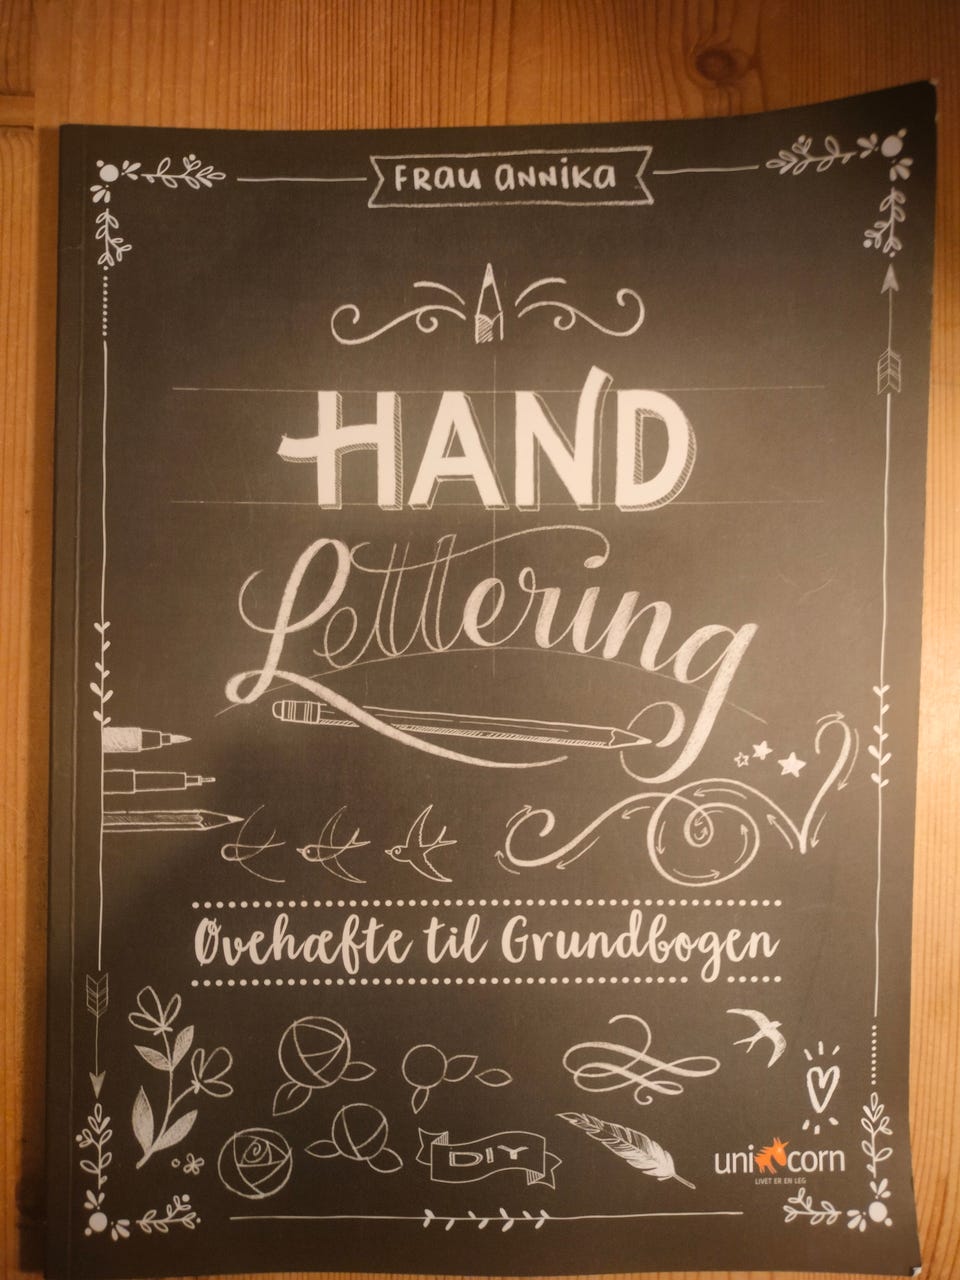 FRAU ANNIKA
HAND
Lettering
Øvehæfte til Grundbogen
DIY
unicorn
LIVET ER EN LEG